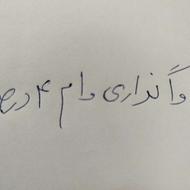 واگذاری وام ۴ درص